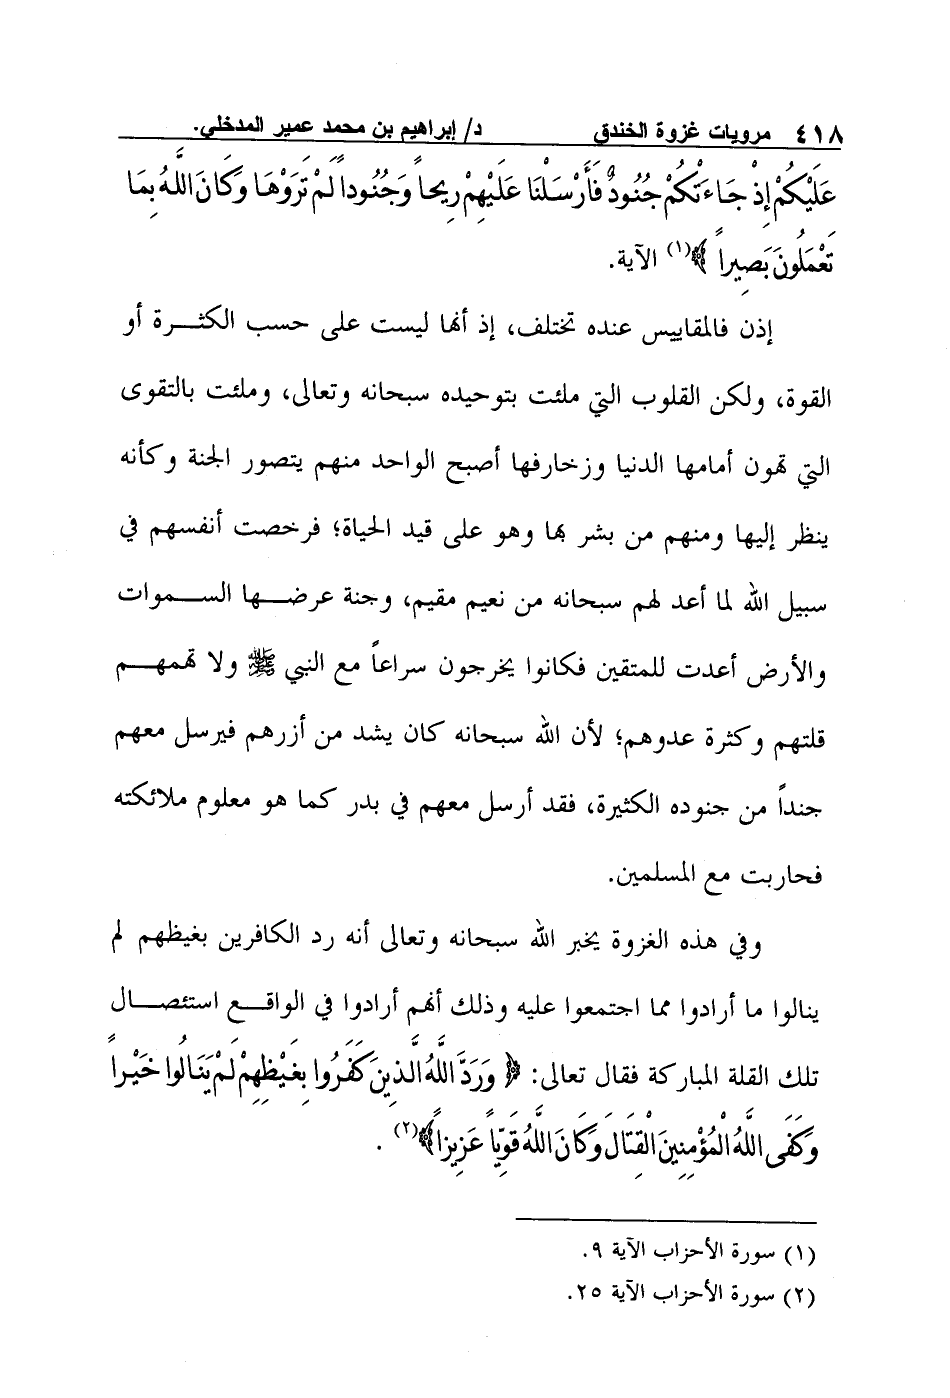 ٤١٨ مرويات غزوة الخندق د/ إبراهيم بن محمد عمير المدخلي.
عَلَيْكُمْ إِذْ جَاءَتْكُمْ جُنُودٌ فَأَرْسَلْنَا عَلَيْهِمْ رِيحاً وَجُنُوداً لَمْ تَرَوْهَا وَكَانَ اللَّهُ بِمَا
تَعْمَلُونَ بَصِيراً ﴾(١) الآية.
إذن فالمقاييس عنده تختلف، إذ أنها ليست على حسب الكثرة أو
القوة، ولكن القلوب التي ملئت بتوحيده سبحانه وتعالى، وملئت بالتقوى
التي تهون أمامها الدنيا وزخارفها أصبح الواحد منهم يتصور الجنة وكأنه
ينظر إليها ومنهم من بشر بها وهو على قيد الحياة؛ فرخصت أنفسهم في
سبيل الله لما أعد لهم سبحانه من نعيم مقيم، وجنة عرضها السموات
والأرض أعدت للمتقين فكانوا يخرجون سراعاً مع النبي ﷺ ولا تهمهم
قلتهم وكثرة عدوهم؛ لأن الله سبحانه كان يشد من أزرهم فيرسل معهم
جنداً من جنوده الكثيرة، فقد أرسل معهم في بدر كما هو معلوم ملائكته
فحاربت مع المسلمين.
وفي هذه الغزوة يخبر الله سبحانه وتعالى أنه رد الكافرين بغيظهم لم
ينالوا ما أرادوا مما اجتمعوا عليه وذلك أنهم أرادوا في الواقع استئصال
تلك القلة المباركة فقال تعالى: ﴿ وَرَدَّ اللَّهُ الَّذِينَ كَفَرُوا بِغَيْظِهِمْ لَمْ يَنَالُوا خَيْراً
وَكَفَى اللَّهُ الْمُؤْمِنِينَ الْقِتَالَ وَكَانَ اللَّهُ قَوِيّاً عَزِيزاً﴾(٢) .
(١) سورة الأحزاب الآية ٩.
(٢) سورة الأحزاب الآية ٢٥.